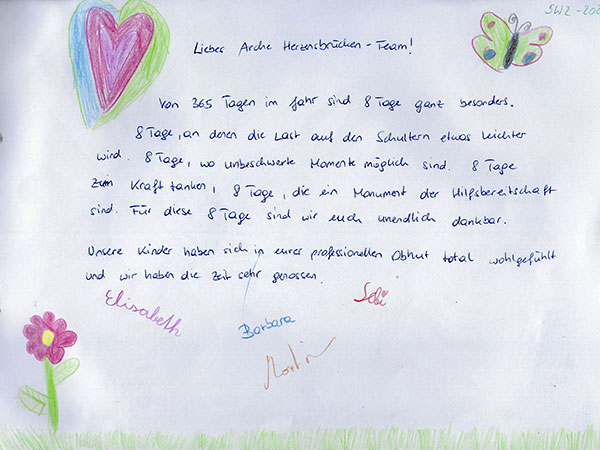 SW2-202
Liebes Arche Herzensbrücken-Team!
Von 365 Tagen im Jahr sind 8 Tage ganz besonders.
8 Tage, an denen die Last auf den Schultern etwas leichter
wird. 8 Tage, wo unbeschwerte Momente möglich sind. 8 Tage
zum Kraft tanken, 8 Tage, die ein Monument der Hilfsbereitschaft
sind. Für diese 8 Tage sind wir euch unendlich dankbar.
Unsere Kinder haben sich in eurer professionellen Obhut total wohlgefühlt
und wir haben die Zeit sehr genossen.
Elisabeth
Sebi
Barbara
Martin